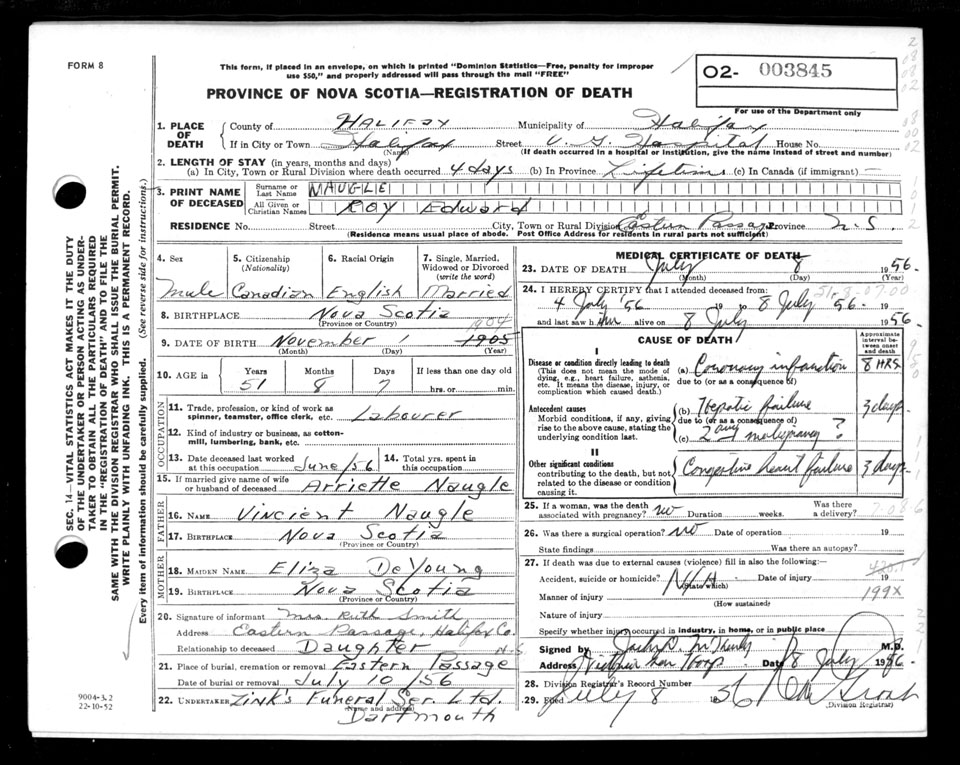 FORM 8
This form, if placed in an envelope, on which is printed "Dominion Statistics—Free, penalty for improper
use $50," and properly addressed will pass through the mail "FREE"
O2- 003845
For use of the Department only
PROVINCE OF NOVA SCOTIA—REGISTRATION OF DEATH
1. PLACE OF DEATH County of HALIFAX Municipality of Halifax
If in City or Town Halifax (Name) Street V. G. Hospital House No.
(If death occurred in a hospital or institution, give the name instead of street and number)
2. LENGTH OF STAY (in years, months and days)
(a) In City, Town or Rural Division where death occurred 4 days (b) In Province Lifetime (c) In Canada (if immigrant) —
3. PRINT NAME OF DECEASED Surname or Last Name NAUGLE
All Given or Christian Names Roy Edward
RESIDENCE No. Street City, Town or Rural Division Eastern Passage Province N.S.
(Residence means usual place of abode. Post Office Address for residents in rural parts not sufficient)
4. Sex 5. Citizenship (Nationality) 6. Racial Origin 7. Single, Married, Widowed or Divorced (write the word)
Male Canadian English Married
8. BIRTHPLACE Nova Scotia
(Province or Country)
1904
9. DATE OF BIRTH November 1 1905
(Month) (Day) (Year)
10. AGE in Years Months Days If less than one day old
51 8 7 hrs. or min.
OCCUPATION
11. Trade, profession, or kind of work as spinner, teamster, office clerk, etc. Labourer
12. Kind of industry or business, as cotton-mill, lumbering, bank, etc.
13. Date deceased last worked at this occupation June/56 14. Total yrs. spent in this occupation
15. If married give name of wife or husband of deceased Arriette Naugle
FATHER
16. NAME Vincient Naugle
17. BIRTHPLACE Nova Scotia
(Province or Country)
MOTHER
18. MAIDEN NAME Eliza DeYoung
19. BIRTHPLACE Nova Scotia
(Province or Country)
20. Signature of informant Mrs. Ruth Smith
Address Eastern Passage, Halifax Co.
Relationship to deceased Daughter N.S
21. Place of burial, cremation or removal Eastern Passage
Date of burial or removal July 10/56
22. UNDERTAKER Zink's Funeral Ser. Ltd.
(Name and address)
Dartmouth
MEDICAL CERTIFICATE OF DEATH
23. DATE OF DEATH July 8 1956.
(Month) (Day) (Year)
24. I HEREBY CERTIFY that I attended deceased from:
4 July '56 19 to 8 July 56 19
and last saw him alive on 8 July 1956
CAUSE OF DEATH
Approximate interval between onset and death
I
Disease or condition directly leading to death
(This does not mean the mode of dying, e.g., heart failure, asthenia, etc. It means the disease, injury, or complication which caused death.)
(a) Coronary infarction 8 HRS.
due to (or as a consequence of)
Antecedent causes
Morbid conditions, if any, giving rise to the above cause, stating the underlying condition last.
(b) Hepatic failure 3 days
due to (or as a consequence of)
(c) 2ary malignancy ?
II
Other significant conditions
contributing to the death, but not related to the disease or condition causing it.
Congestive heart failure 3 days
25. If a woman, was the death associated with pregnancy? no Duration weeks. Was there a delivery?
26. Was there a surgical operation? NO Date of operation 19
State findings Was there an autopsy?
27. If death was due to external causes (violence) fill in also the following:
Accident, suicide or homicide? N/A (State which) Date of injury 19
420.1
Manner of injury 199X
(How sustained)
Nature of injury
Specify whether injury occurred in industry, in home, or in public place
Signed by M.D.
Address Date 8 July 1956.
28. Division Registrar's Record Number
29. Filed July 8 1956
(Division Registrar)
SEC. 14—VITAL STATISTICS ACT MAKES IT THE DUTY
OF THE UNDERTAKER OR PERSON ACTING AS UNDER-
TAKER TO OBTAIN ALL THE PARTICULARS REQUIRED
IN THE "REGISTRATION OF DEATH" AND TO FILE THE
SAME WITH THE DIVISION REGISTRAR WHO SHALL ISSUE THE BURIAL PERMIT.
WRITE PLAINLY WITH UNFADING INK. THIS IS A PERMANENT RECORD.
Every item of information should be carefully supplied. (See reverse side for instructions.)
9004-3.2
22-10-52